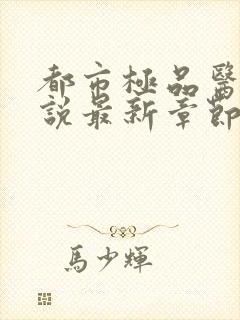 都市極品醫
說最新章節
馬少輝